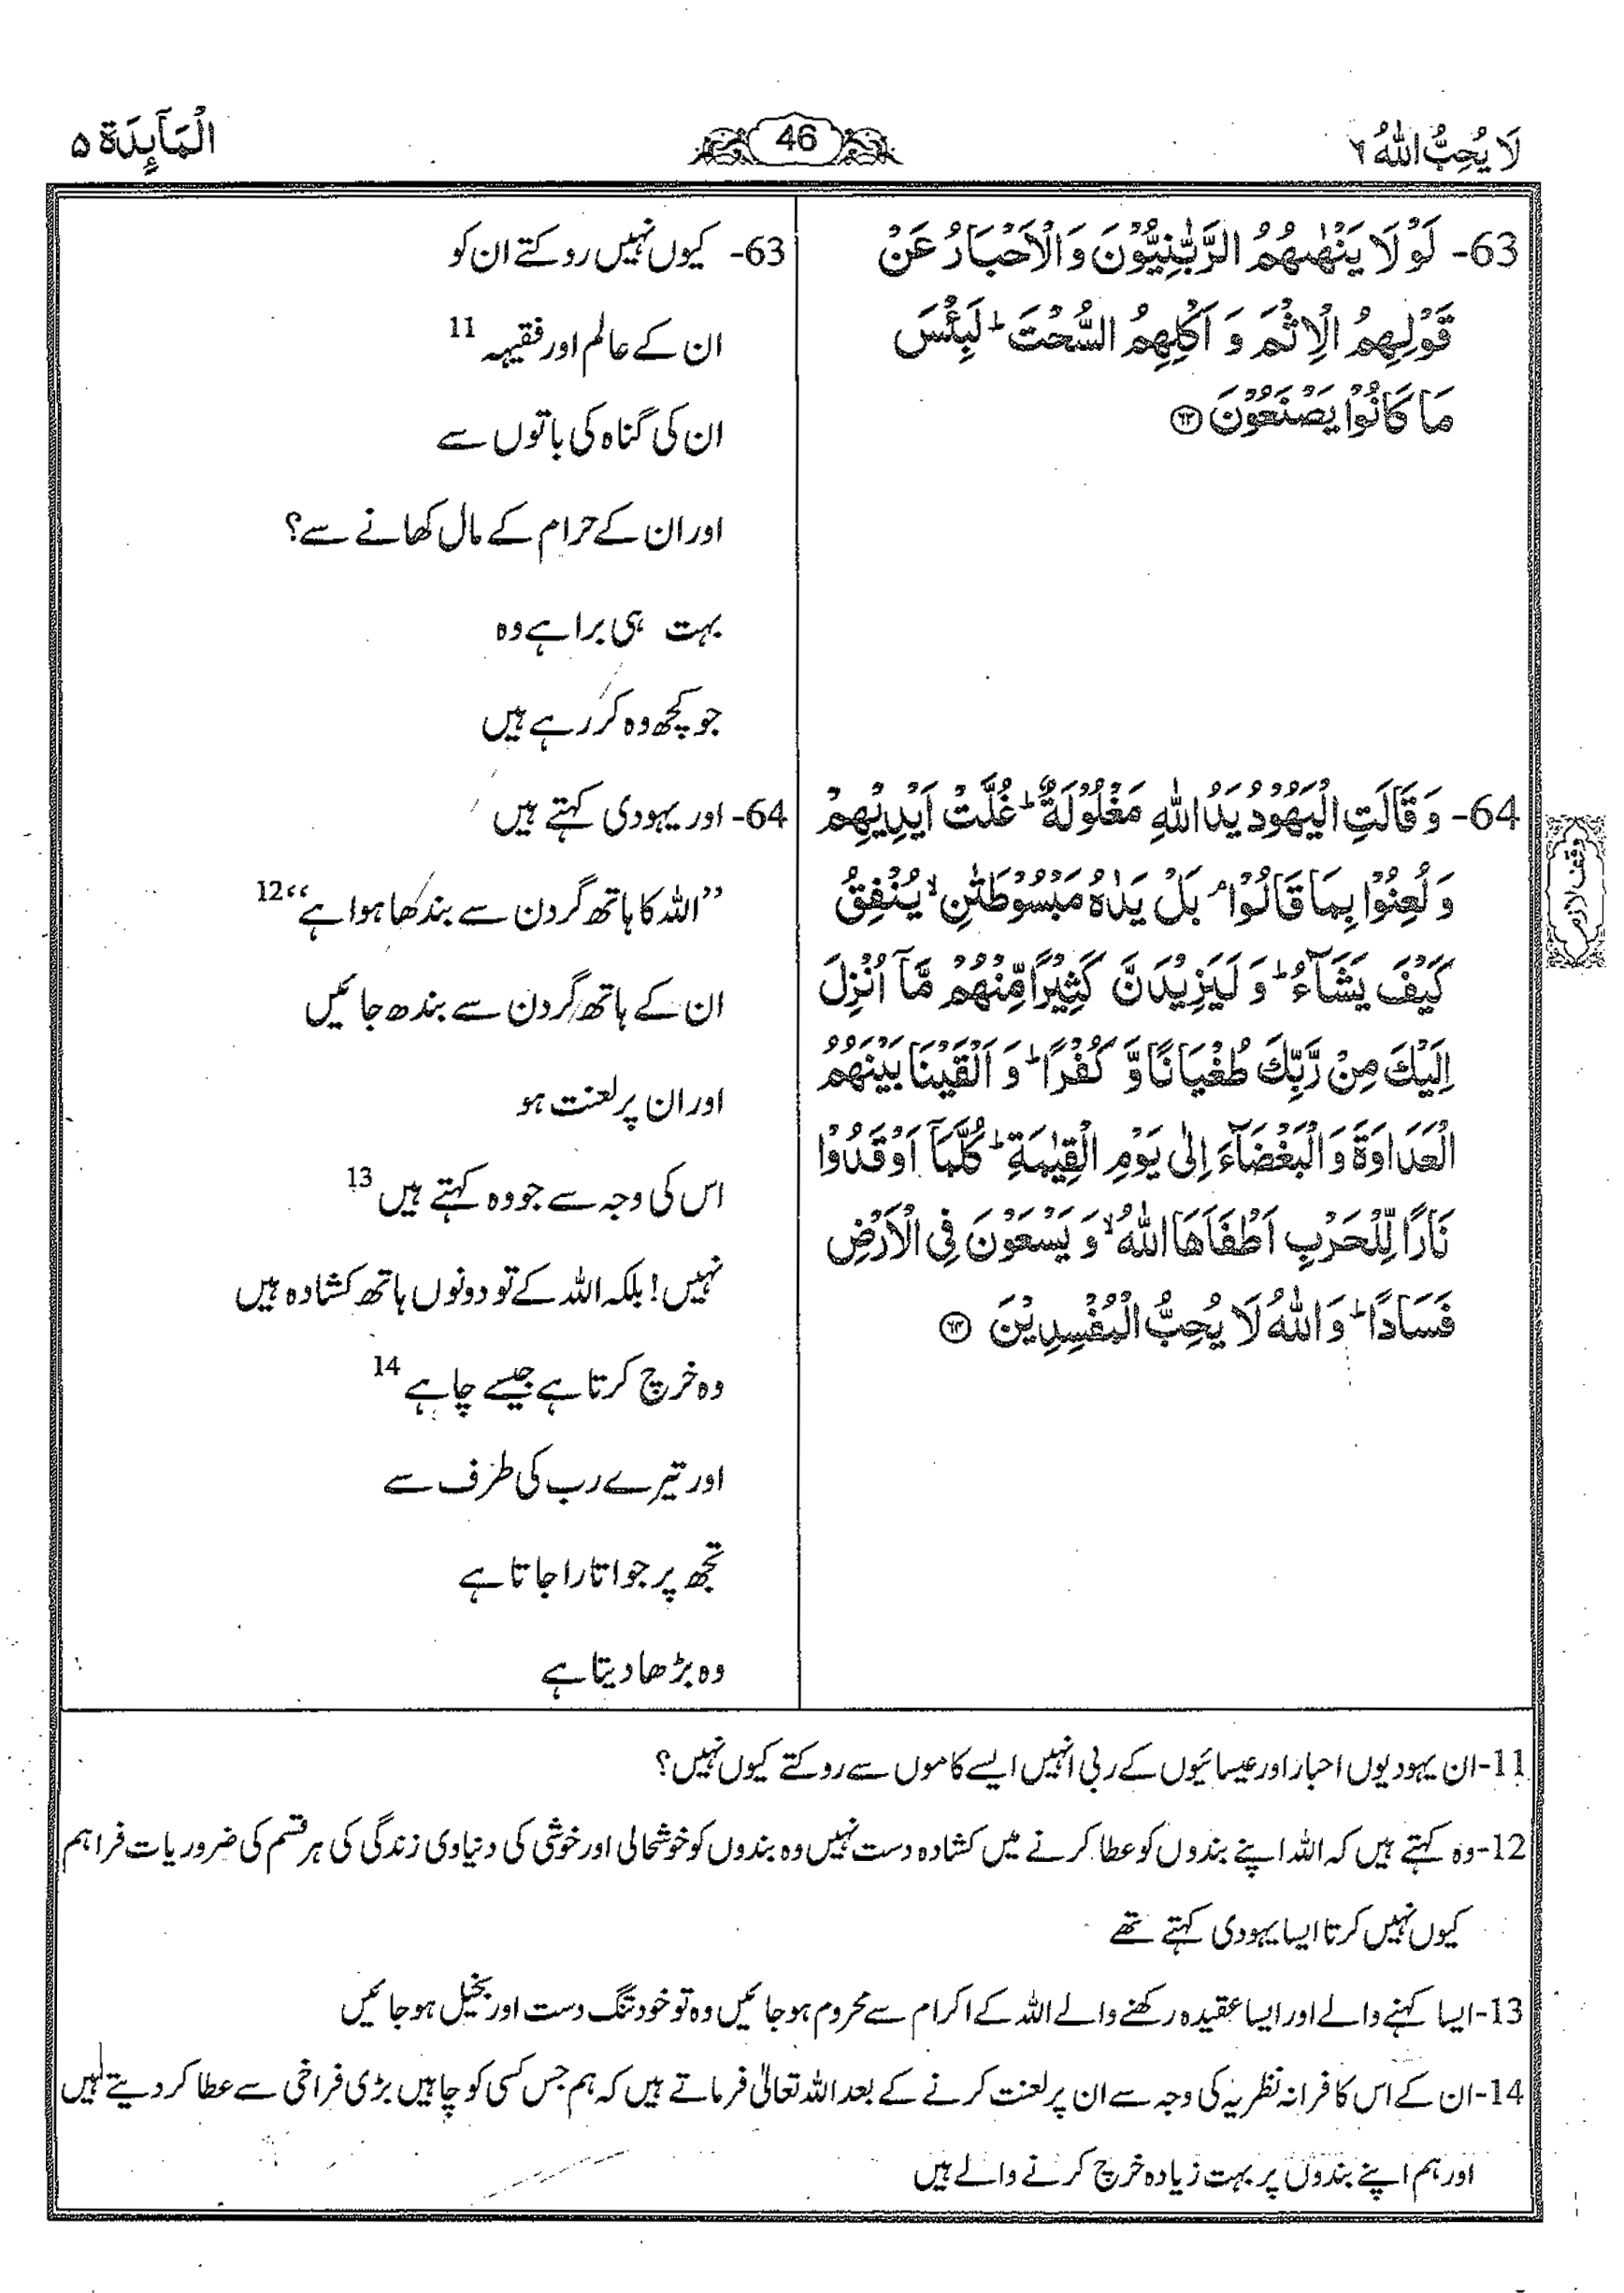 لَا یُحِبُّ اللّٰهُ ۶
46
الْمَآىِٕدَة ۵
63- لَوْ لَا یَنْهٰىهُمُ الرَّبّٰنِیُّوْنَ وَ الْاَحْبَارُ عَنْ
قَوْلِهِمُ الْاِثْمَ وَ اَكْلِهِمُ السُّحْتَ ؕ لَبِئْسَ
مَا كَانُوْا یَصْنَعُوْنَ ﴿۶۳﴾
64- وَ قَالَتِ الْیَهُوْدُ یَدُ اللّٰهِ مَغْلُوْلَةٌ ؕ غُلَّتْ اَیْدِیْهِمْ
وَ لُعِنُوْا بِمَا قَالُوْا ۘ بَلْ یَدٰهُ مَبْسُوْطَتٰنِ ۙ یُنْفِقُ
كَیْفَ یَشَآءُ ؕ وَ لَیَزِیْدَنَّ كَثِیْرًا مِّنْهُمْ مَّاۤ اُنْزِلَ
اِلَیْكَ مِنْ رَّبِّكَ طُغْیَانًا وَّ كُفْرًا ؕ وَ اَلْقَیْنَا بَیْنَهُمُ
الْعَدَاوَةَ وَ الْبَغْضَآءَ اِلٰى یَوْمِ الْقِیٰمَةِ ؕ كُلَّمَاۤ اَوْقَدُوْا
نَارًا لِّلْحَرْبِ اَطْفَاَهَا اللّٰهُ ۙ وَ یَسْعَوْنَ فِی الْاَرْضِ
فَسَادًا ؕ وَ اللّٰهُ لَا یُحِبُّ الْمُفْسِدِیْنَ ﴿۶۴﴾
وقف لازم
63- کیوں نہیں روکتے ان کو
ان کے عالم اور فقیہہ 11
ان کی گناہ کی باتوں سے
اور ان کے حرام کے مال کھانے سے؟
بہت ہی برا ہے وہ
جو کچھ وہ کر رہے ہیں
64- اور یہودی کہتے ہیں
”اللہ کا ہاتھ گردن سے بندھا ہوا ہے“ 12
ان کے ہاتھ گردن سے بندھ جائیں
اور ان پر لعنت ہو
اس کی وجہ سے جو وہ کہتے ہیں 13
نہیں! بلکہ اللہ کے تو دونوں ہاتھ کشادہ ہیں
وہ خرچ کرتا ہے جیسے چاہے 14
اور تیرے رب کی طرف سے
تجھ پر جو اتارا جاتا ہے
وہ بڑھا دیتا ہے
11- ان یہودیوں احبار اور عیسائیوں کے ربی انہیں ایسے کاموں سے روکتے کیوں نہیں؟
12- وہ کہتے ہیں کہ اللہ اپنے بندوں کو عطا کرنے میں کشادہ دست نہیں وہ بندوں کو خوشحالی اور خوشی کی دنیاوی زندگی کی ہر قسم کی ضروریات فراہم
کیوں نہیں کرتا ایسا یہودی کہتے تھے
13- ایسا کہنے والے اور ایسا عقیدہ رکھنے والے اللہ کے اکرام سے محروم ہو جائیں وہ تو خود تنگ دست اور بخیل ہو جائیں
14- ان کے اس کافرانہ نظریہ کی وجہ سے ان پر لعنت کرنے کے بعد اللہ تعالیٰ فرماتے ہیں کہ ہم جس کسی کو چاہیں بڑی فراخی سے عطا کر دیتے ہیں
اور ہم اپنے بندوں پر بہت زیادہ خرچ کرنے والے ہیں